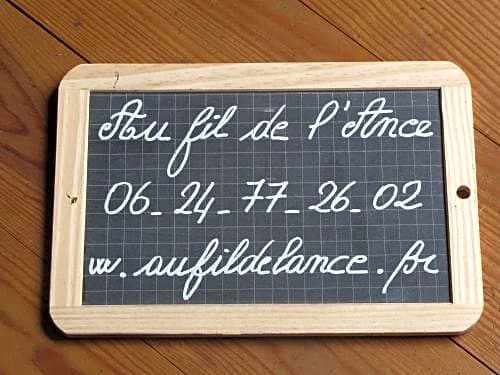 Au fil de l'Ance
06_24_77_26_02
w.aufildelance.fr